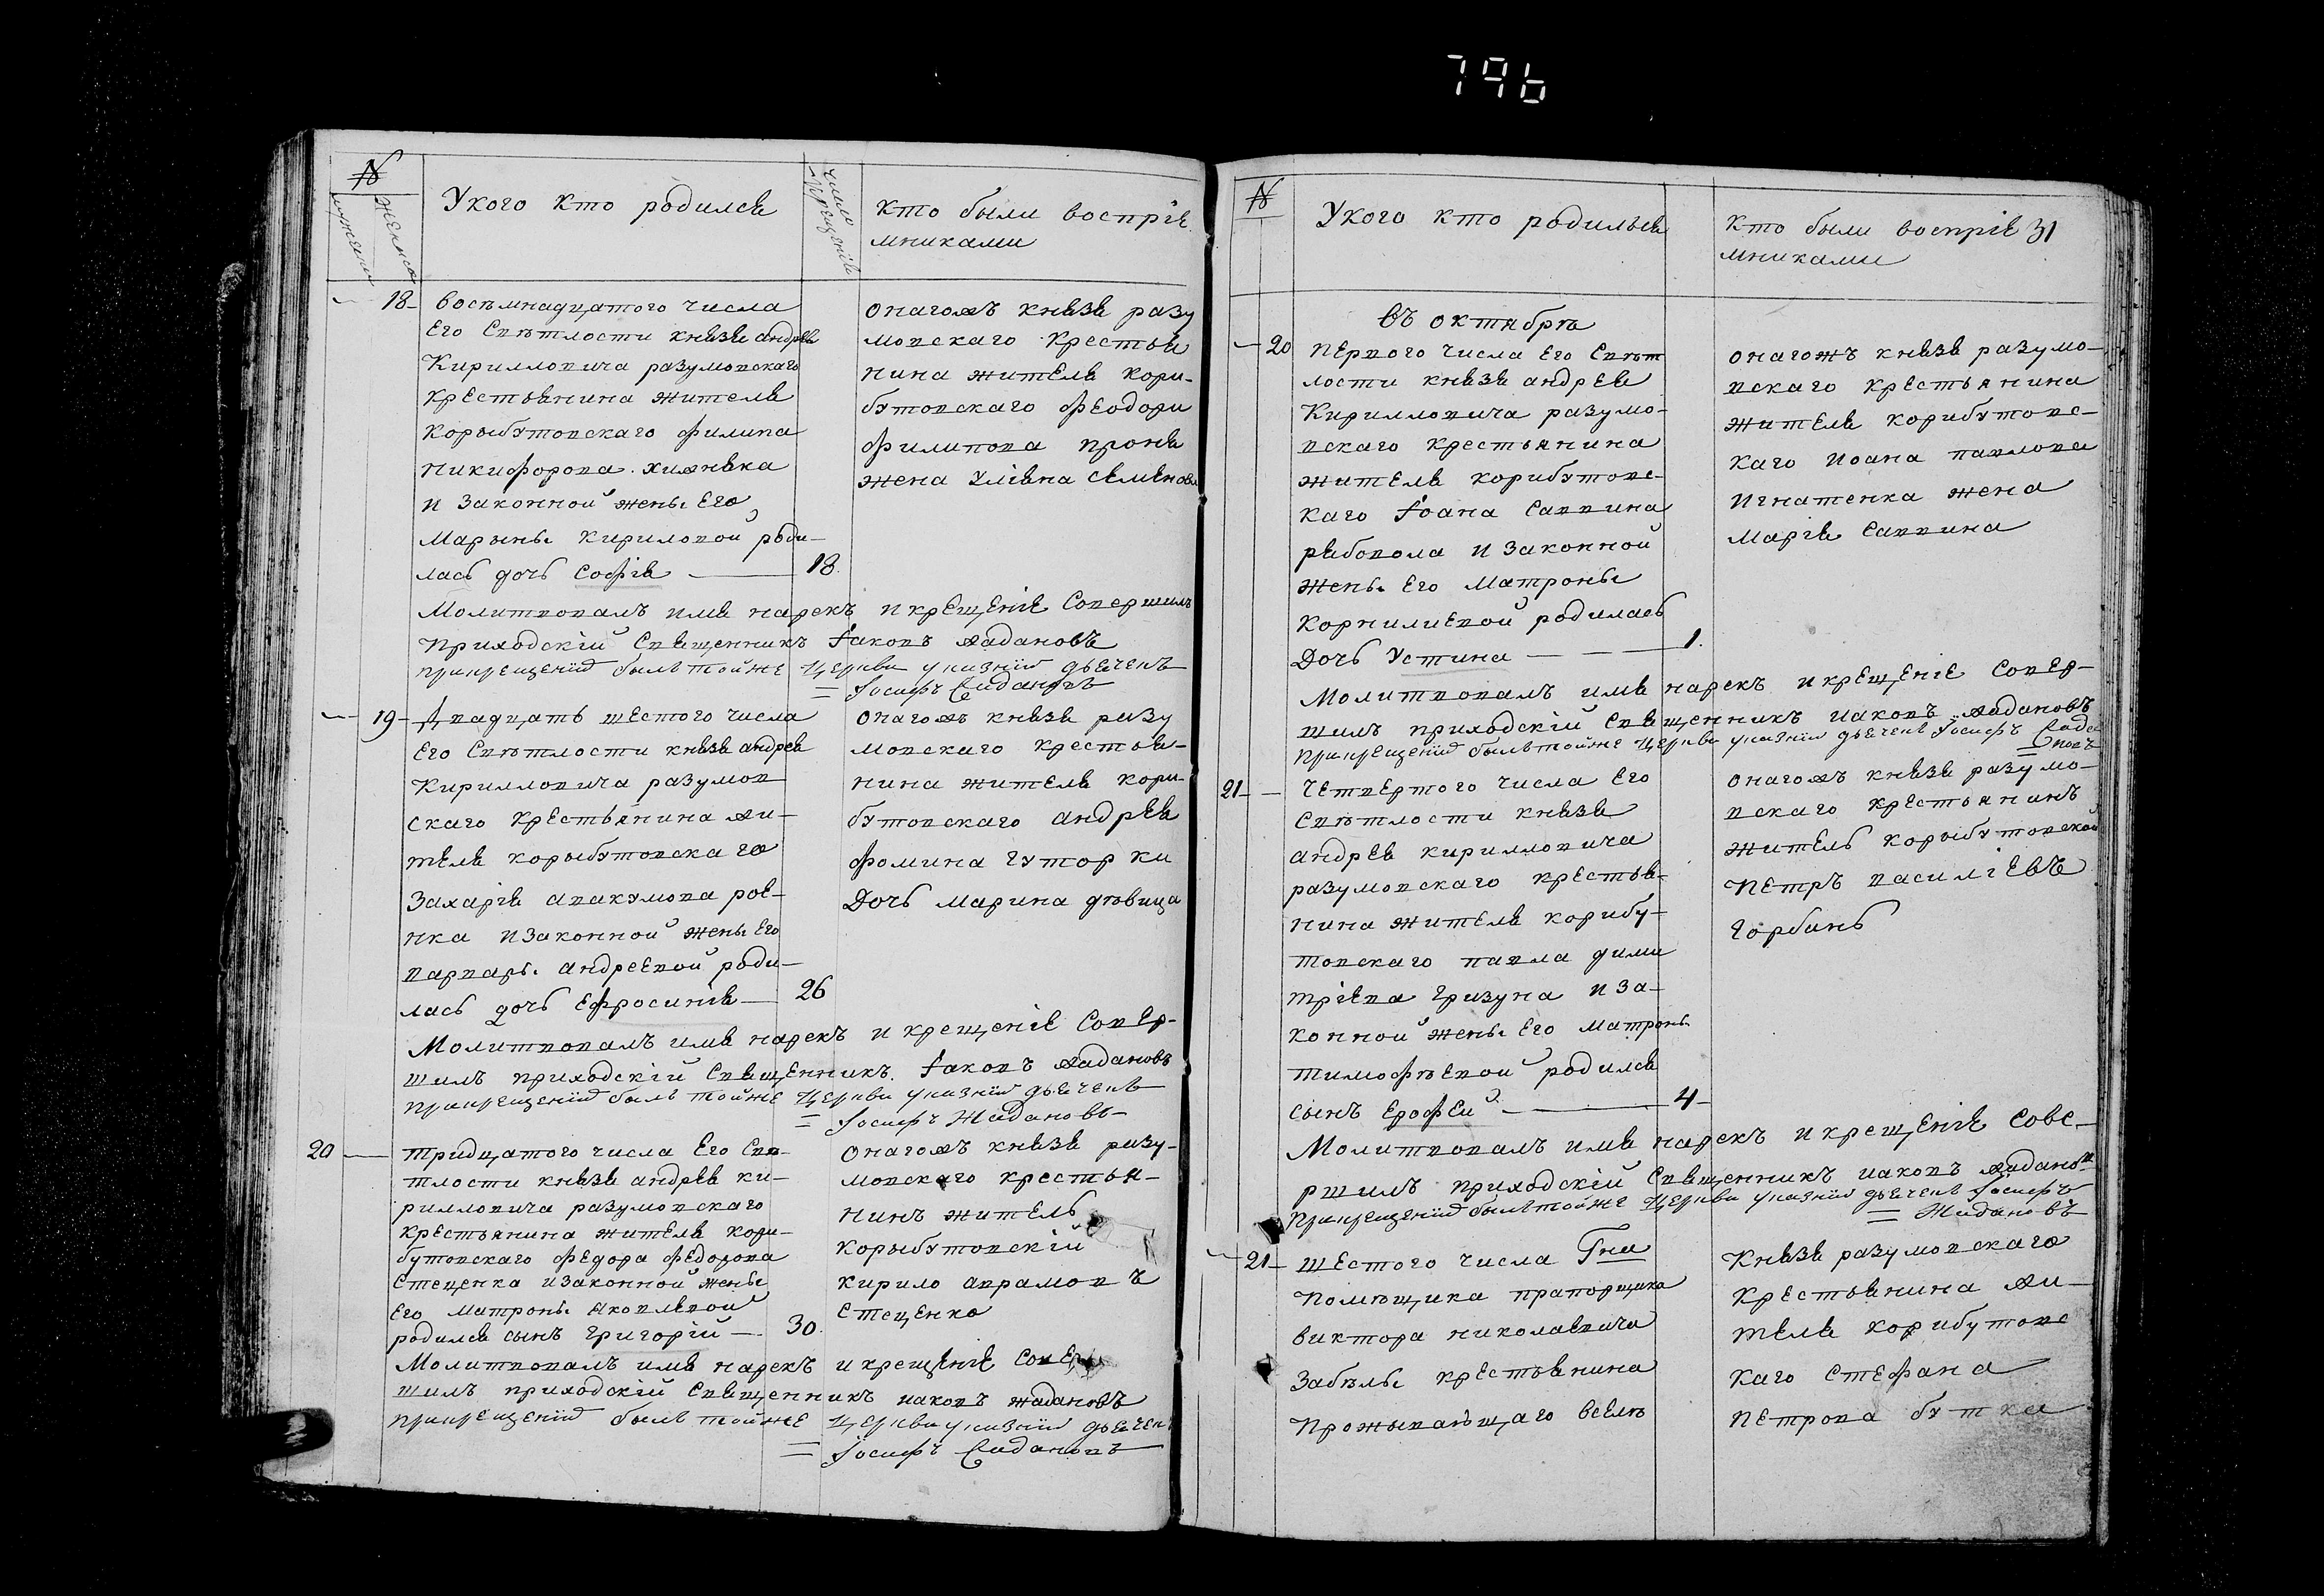 796
№
мужеска
женска
Укого кто родился
число
крещенія
кто были воспріе
мниками
18 восѣмнадцатого числа
Его Свѣтлости князя андрея
Кирилловича разумовскаго
крестьянина жителя
корыбутовскаго филипа
никифорова
и законной жены Его
Марыны кириловой роди-
лась дочь Софія — 18.
онагожъ князя разу
мовскаго крестья
нина жителя кори-
бутовскаго феодора
филипова
жена Уліяна семенова
Молитвовалъ имя нарекъ и крещеніе Совершилъ
приходскій Священникъ Іаковъ Ждановъ
прикрещеніи былъ тойже Церкви указній дьячекъ
= Іосифъ Ждановъ
19 двадцать шестого числа
Его Свѣтлости князя андрея
Кирилловича разумов
скаго крестьянина жи-
теля корыбутовскаго
Захарія авакумова рое-
нка изаконной жены Его
варвары андреевой роди-
лась дочь ефросинія — 26
онагожъ князя разу
мовскаго крестья-
нина жителя кори-
бутовскаго андрея
фомина гутор ки
Дочь марина дѣвица
Молитвовалъ имя нарекъ и крещеніе Совер-
шилъ приходскій Священникъ. Іаковъ Ждановъ
прикрещеніи былъ тойже Церкви указній дьячекъ
= Іосифъ Ждановъ
20 — тридцатого числа Его Свѣ-
тлости князя андрея ки-
рилловича разумовскаго
крестьянина жителя кори-
бутовскаго федора федорова
стеценка изаконной жены
Его матроны яковлевой
родился сынъ григорій — 30.
онагожъ князя разу-
мовскаго крестья-
нинъ житель
корыбутовскій
кирило аврамовъ
стеценко
Молитвовалъ имя нарекъ и крещеніе Совер
шилъ приходскій Священникъ иаковъ ждановъ
прикрещеніи былъ тойже Церкви указній дьячекъ
= Іосифъ Ждановъ
№
Укого кто родилься
Кто были воспріе 31
мниками
въ октябрѣ
20 первого числа Его Свѣт
лости князя андрея
Кирилловича разумо-
вскаго крестьянина
жителя корибутовс-
каго Іоана Саввина
рябовола и законной
жены Его Матроны
корнилиевой родилась
Дочь Устина — — 1.
онагожъ князя разумо-
вскаго крестьянина
жителя корибутовс-
каго иоана павлова
игнатенка жена
марія саввина
Молитвовалъ имя нарекъ и крещеніе Совер-
шилъ приходскій Священникъ иаковъ Ждановъ
прикрещеніи былъ тойже Церкви указній дьячекъ Іосифъ Жда
= новъ
21 — Четвертого числа Его
Свѣтлости князя
андрея кирилловича
разумовскаго крестья-
нина жителя корибу-
товскаго павла дими
тріева гризуна и за-
конной жены Его матроны
тимофѣевой родился
сынъ ерофей — 4 —
онагожъ князя разумо-
вскаго крестьянинъ
житель корыбутовской
петръ василіевъ
горбань
Молитвовалъ имя нарекъ и крещеніе сове-
ршилъ приходскій Священникъ иаковъ Жданов
прикрещеніи былъ тойже Церкви указній дьячекъ Іосифъ
= Ждановъ
21 шестого числа Гна
помѣщика прапорщика
виктора николаевича
Забѣлы крестьянина
прожываящаго вселѣ
Князя разумовскаго
крестьянина жи-
теля корибутовс
каго стефана
петрова бутка